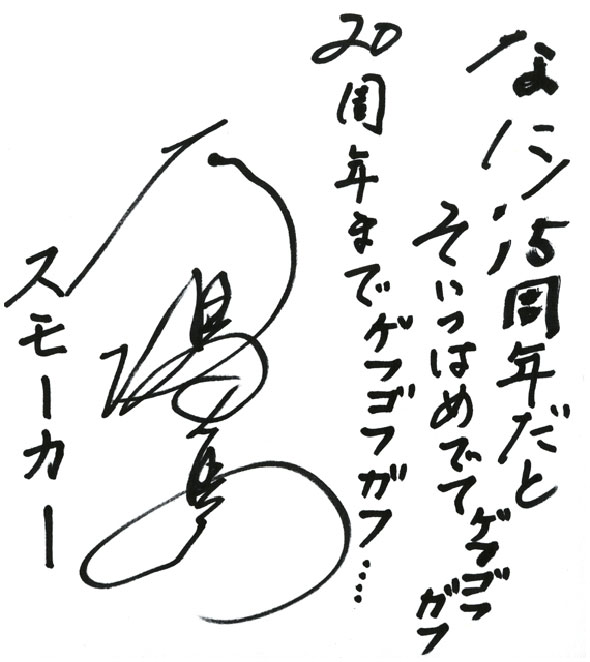 なにッ、15周年だと
そいつはめでてゲフゴフ
ガフ
20周年までゲフゴフガフ…
スモーカー